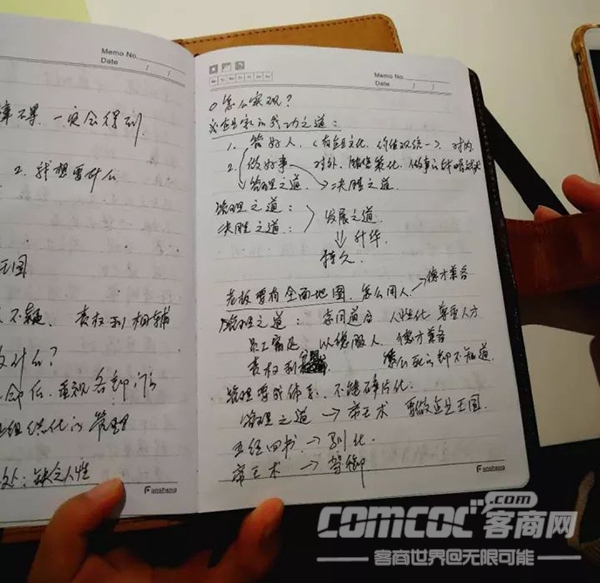 Memo No.
Date / /
一定会得到
2. 我想要什么
王国
不疑. 责权利相辅
什么?
重视各部门
组织化的管理
缺乏人性
Fansheng
Memo No.
Date / /
Mo Tu We Th Fr Sa Su
怎么实现?
企业家的成功之道:
1. 管好人. (有企业文化. 价值观统一). 对内
2. 做好事 对外.
管理之道. 决胜之道.
管理之道:
决胜之道: 发展之道.
⇓ 升华.
持久.
老板要有全面地图. 怎么用人. → 德才兼备
管理之道: 志同道合 人性化 尊重人才
员工富足 以德服人. 德才兼备
责权利 怎么死的都不知道.
管理要成体系. 不能碎片化.
管理之道 → 帝王术 要做企业王国.
五经四书. → 别化.
帝王术 → 驾御
Fansheng
comcoc.com
客商网
客商世界@无限可能